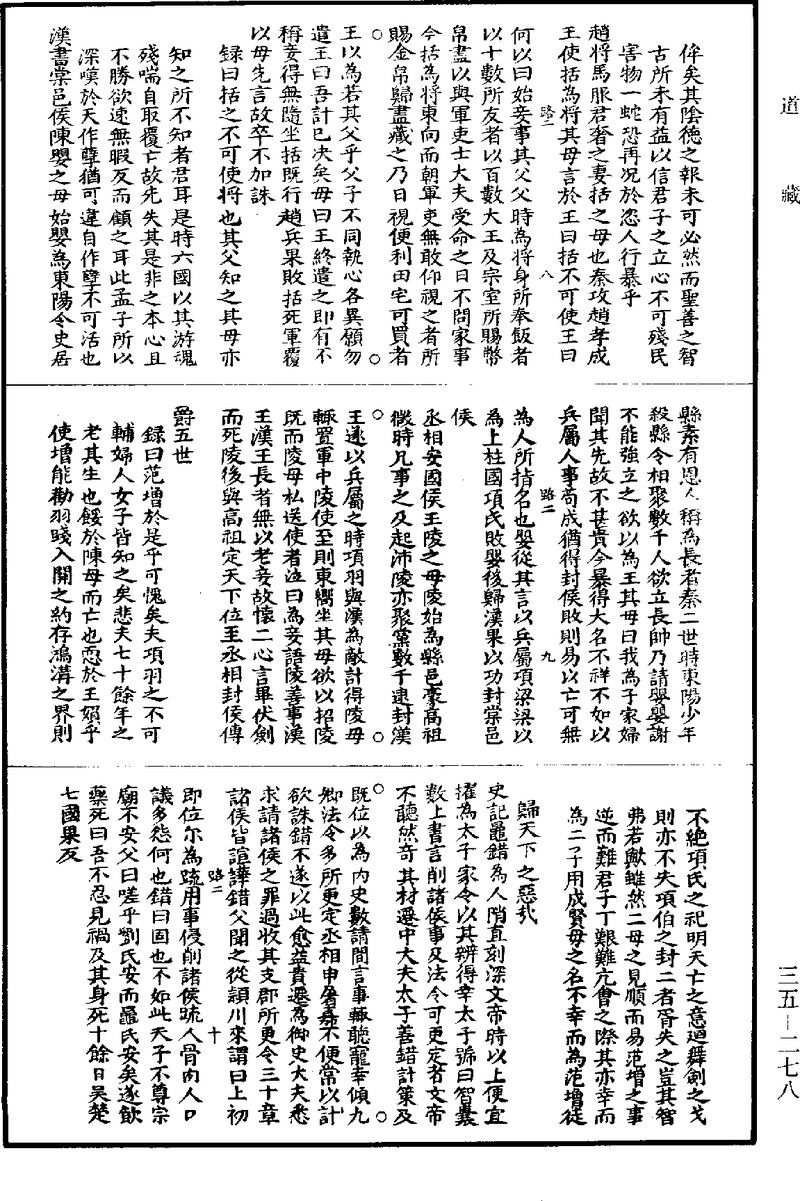 道藏
侔矣其陰德之報未可必然而聖善之智
古所未有益以信君子之立心不可殘民
害物一蛇恐再況於忿人行暴乎
趙將馬服君奢之妻括之母也秦攻趙孝成
王使括為將其母言於王曰括不可使王曰
路二
八
何以曰始妾事其父父時為將身所奉飯者
以十數所友者以百數大王及宗室所賜幣
帛盡以與軍吏士大夫受命之日不問家事
今括為將東向而朝軍吏無敢仰視之者所
賜金帛歸盡藏之乃日視便利田宅可買者
王以為若其父乎父子不同執心各異願勿
遣王曰吾計已決矣母曰王終遣之即有不
稱妾得無隨坐括既行趙兵果敗括死軍覆
以母先言故卒不加誅
録曰括之不可使將也其父知之其母亦
知之所不知者君耳是時六國以其游魂
殘喘自取覆亡故先失其是非之本心且
不勝欲速無暇反而顧之耳此孟子所以
深嘆於天作孽猶可違自作孽不可活也
漢書棠邑侯陳嬰之母始嬰為東陽令史居
縣素有恩人稱為長者秦二世時東陽少年
殺縣令相聚數千人欲立長帥乃請嬰嬰謝
不能強立之欲以為王其母曰我為子家婦
聞其先故不甚貴今暴得大名不祥不如以
兵屬人事苟成猶得封侯敗則易以亡可無
路二
九
為人所指名也嬰從其言以兵屬項梁梁以
為上柱國項氏敗嬰後歸漢果以功封棠邑
侯
丞相安國侯王陵之母陵始為縣邑豪高祖
微時兄事之及起沛陵亦聚黨數千逮封漢
王遂以兵屬之時項羽與漢為敵計得陵母
輒置軍中陵使至則東嚮坐其母欲以招陵
既而陵母私送使者泣曰為妾語陵善事漢
王漢王長者無以老妾故懷二心言畢伏劍
而死陵後與高祖定天下位至丞相封侯傳
爵五世
録曰范增於是乎可愧矣夫項羽之不可
輔婦人女子皆知之矣悲夫七十餘年之
老其生也餒於陳母而亡也恧於王媼乎
使增能勸羽踐入關之約存鴻溝之界則
不絕項氏之祀明天亡之意迴舞劍之戈
則亦不失項伯之封二者胥失之豈其智
弗若歟雖然二母之見順而易范增之事
逆而難君子丁艱難亢會之際其亦幸而
為二子用成賢母之名不幸而為范增徒
歸天下之惡哉
史記鼂錯為人陗直刻深文帝時以上便宜
擢為太子家令以其辨得幸太子號曰智囊
數上書言削諸侯事及法令可更定者文帝
不聽然奇其材遷中大夫太子善錯計策及
既位以為內史數請間言事輒聽寵幸傾九
卿法令多所更定丞相申屠嘉不便常以計
欲誅錯不遂以此愈益貴遷為御史大夫悉
求請諸侯之罪過收其支郡所更令三十章
諸侯皆諠譁錯父聞之從潁川來謂曰上初
路二
十
即位尔為疏用事侵削諸侯疏人骨肉人口
議多怨何也錯曰固也不如此天子不尊宗
廟不安父曰嗟乎劉氏安而鼂氏安矣遂飲
藥死曰吾不忍見禍及其身死十餘日吳楚
七國果反
三五－二七八